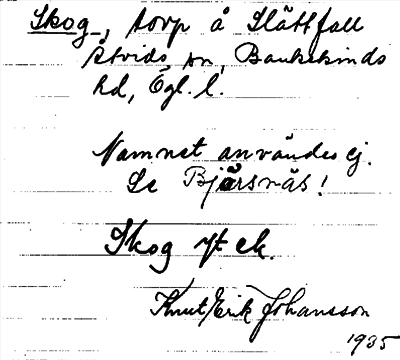 Skog, torp å Slättfall
Åtvids sn, Bankekinds
hd, Ögl. l.
Namnet användes ej.
Se Bjärsnäs!
Skog ek.
Knut/Erik Johansson
1935